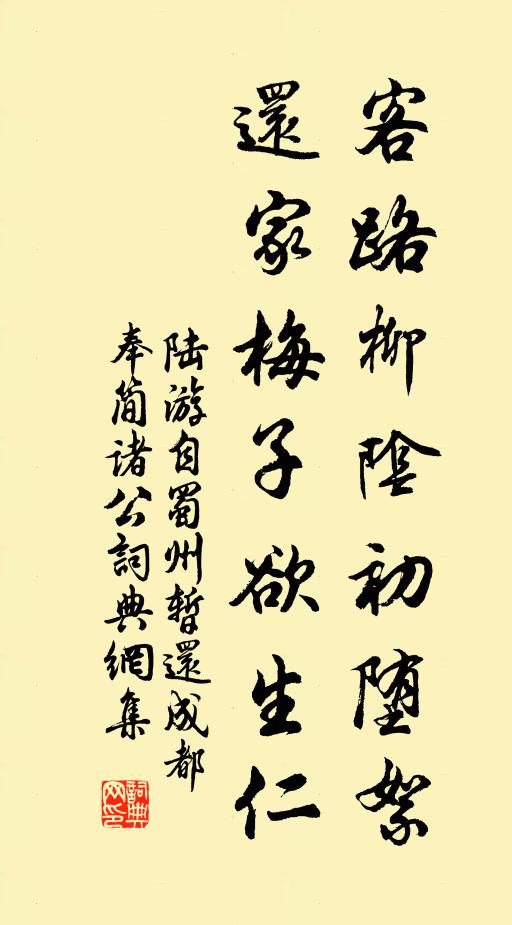 客路柳陰初堕絮
還家梅子欲生仁
陆游自蜀州暫還成都
奉简诸公詞典網集
詞典网印